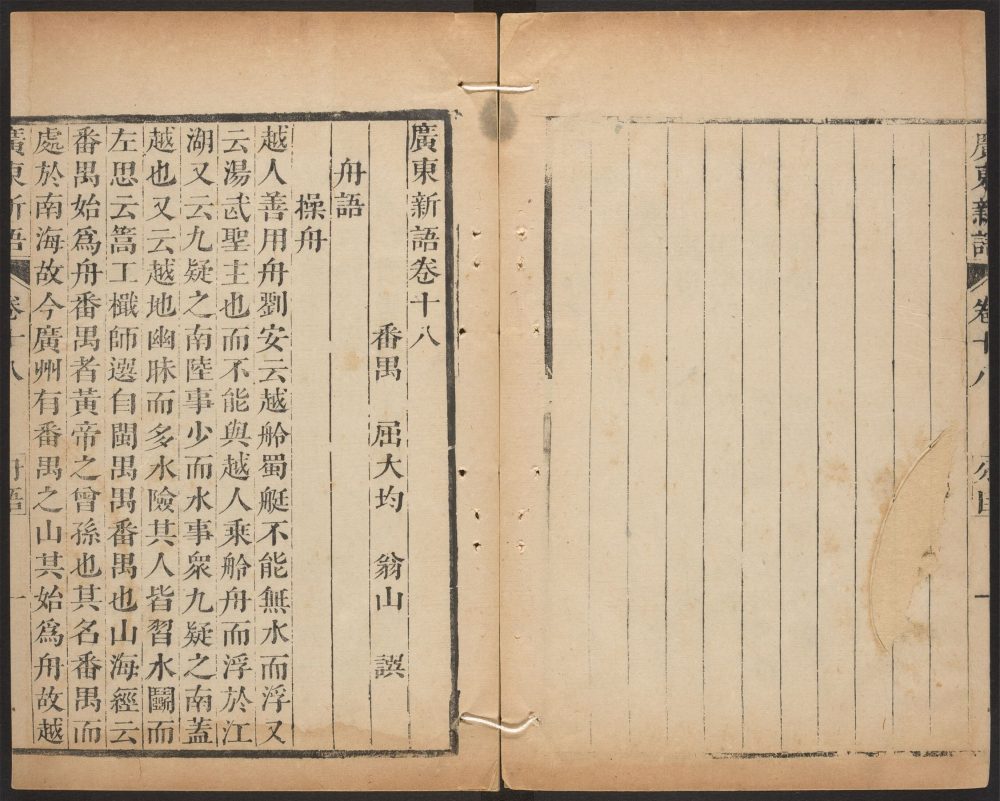 廣東新語 卷十八 一
廣東新語卷十八
番禺 屈大均 翁山 譔
舟語
操舟
越人善用舟劉安云越舲蜀艇不能無水而浮又
云湯武聖主也而不能與越人乘舲舟而浮於江
湖又云九疑之南陸事少而水事衆九疑之南蓋
越也又云越地幽昧而多水險其人皆習水鬭而
左思云篙工檝師選自閩禺禺番禺也山海經云
番禺始爲舟番禺者黃帝之曾孫也其名番禺而
處於南海故今廣州有番禺之山其始爲舟故越
廣東新語 卷十八 舟語 一